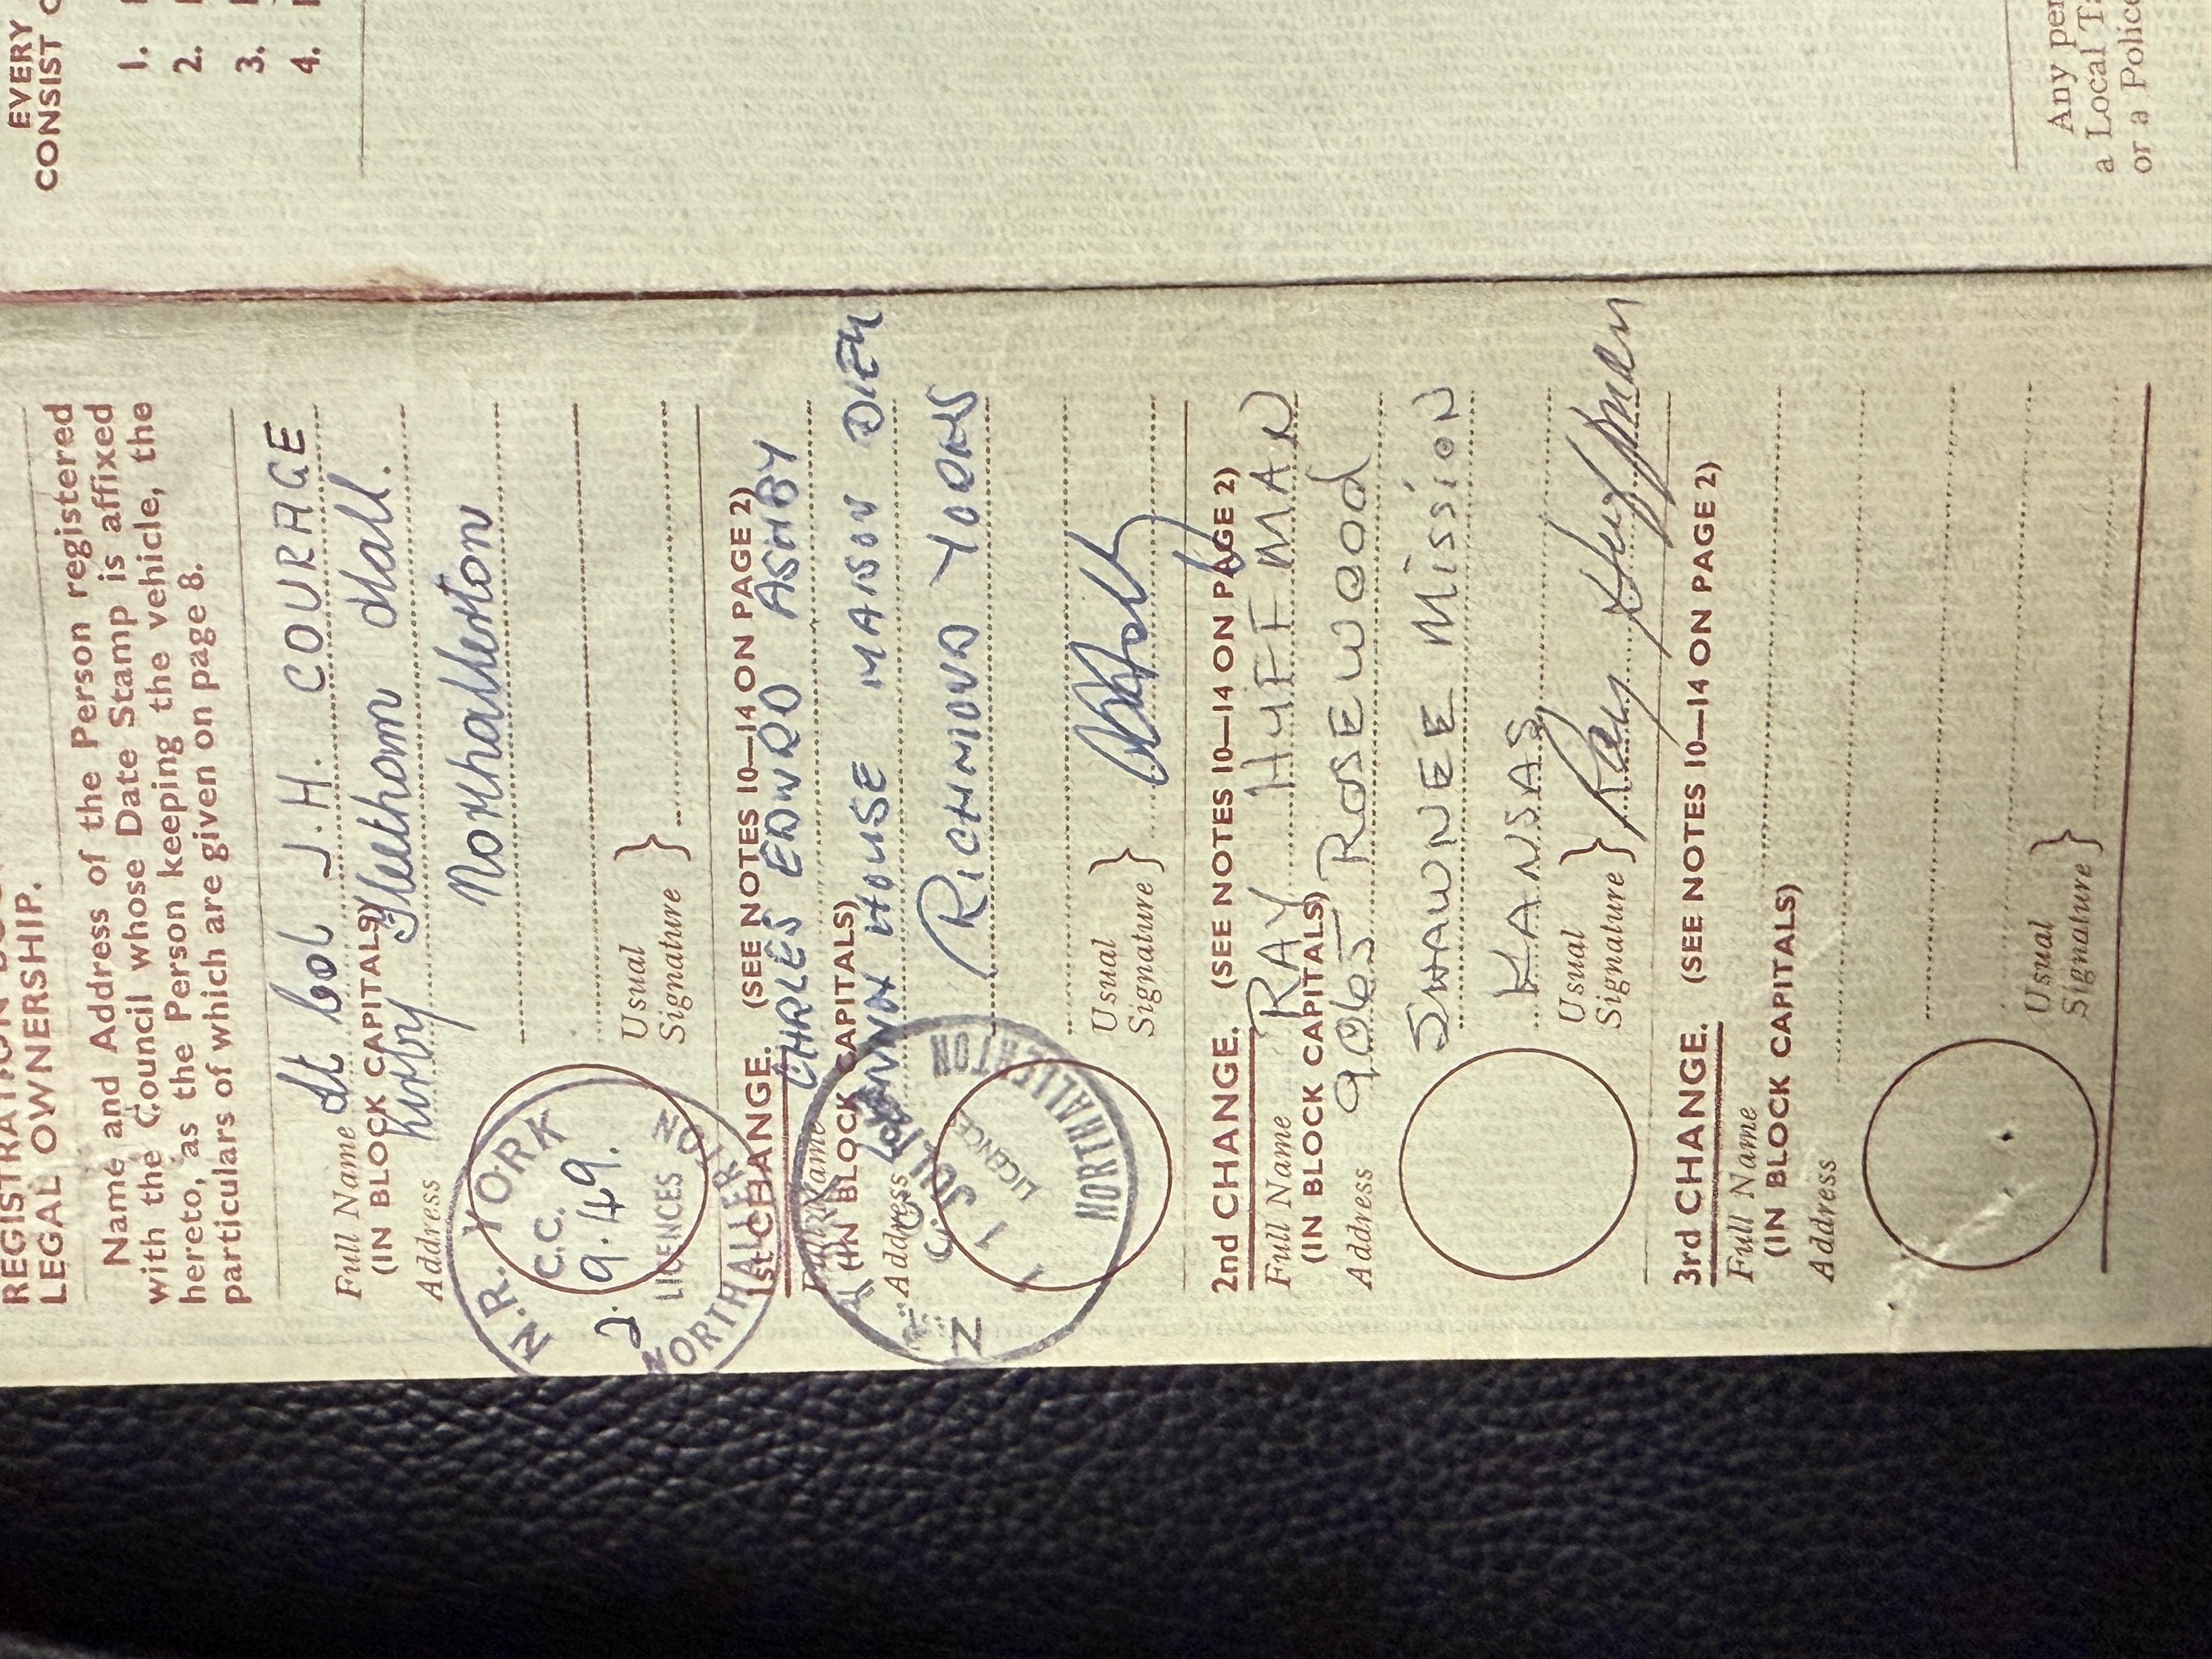 REGISTRATION
LEGAL OWNERSHIP.
Name and Address of the Person registered
with the Council whose Date Stamp is affixed
hereto, as the Person keeping the vehicle, the
particulars of which are given on page 8.
Full Name Lt Col J.H. COURAGE
(IN BLOCK CAPITALS)
Address Kirby Fleetham Hall.
Northallerton
N.R. YORK
C.C.
2.9.49.
LICENCES
NORTHALLERTON
Usual
Signature }
1st CHANGE. (SEE NOTES 10—14 ON PAGE 2)
Full Name CHARLES EDWRD ASHBY
(IN BLOCK CAPITALS)
Address HOUSE MANSON DIEN
RICHMOND YORKS
C.C.
11 JUL
LICENCE
NORTHALLERTON
Usual
Signature }
2nd CHANGE. (SEE NOTES 10—14 ON PAGE 2)
Full Name RAY HUFFMAN
(IN BLOCK CAPITALS)
Address 9065 ROSEWOOd
SHAWNEE MiSSiON
KANSAS
Usual
Signature } Ray Huffman
3rd CHANGE. (SEE NOTES 10—14 ON PAGE 2)
Full Name
(IN BLOCK CAPITALS)
Address
Usual
Signature }
EVERY
CONSIST
1.
2.
3.
4.
Any per
a Local Ta
or a Police